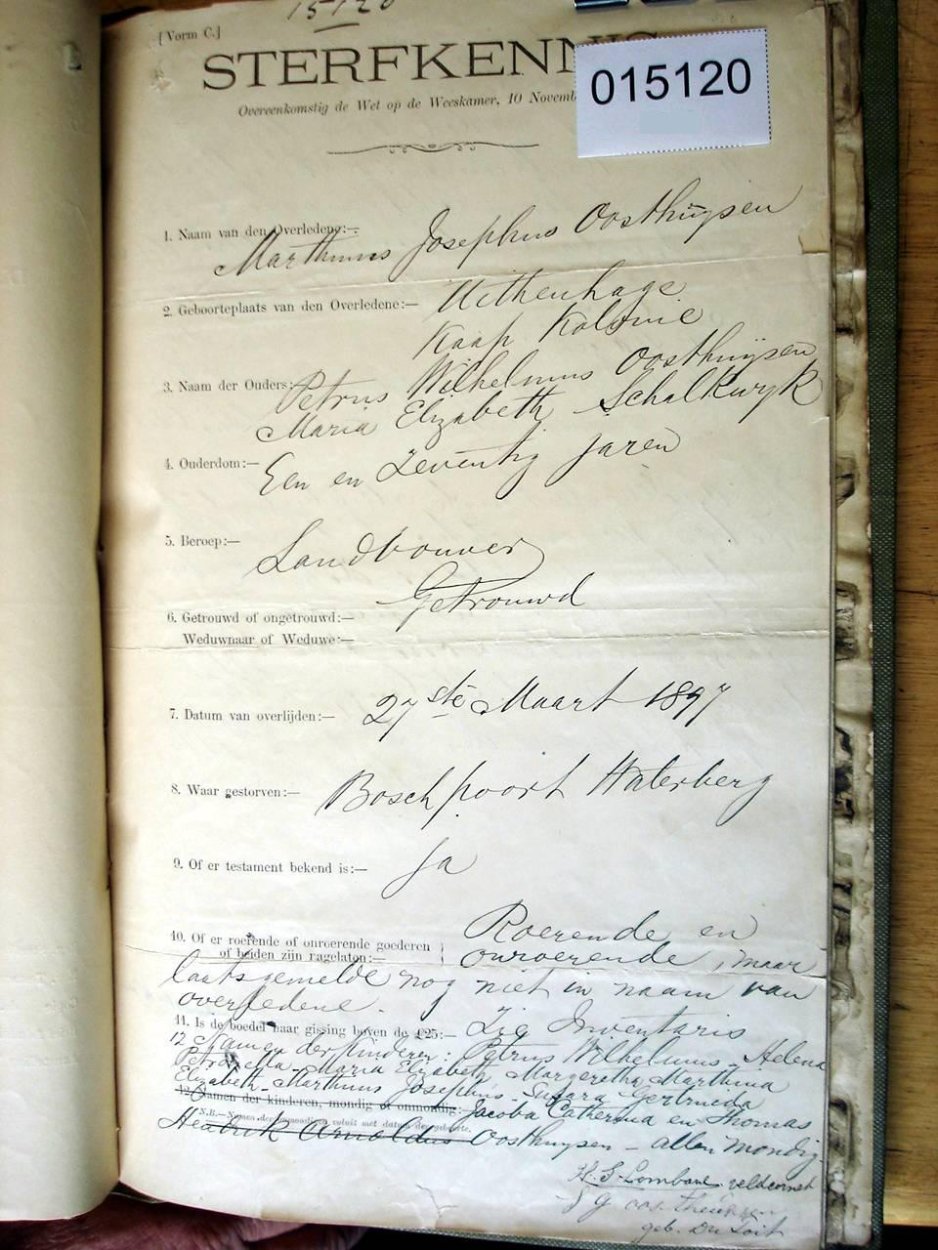 15120
[Vorm C.]
STERFKENNIS
015120
Overeenkomstig de Wet op de Weeskamer, 10 Novemb
1. Naam van den Overledene:—
Marthinus Josephus Oosthuysen
2. Geboorteplaats van den Overledene:— Uithenhage
Kaap Kolonie
3. Naam der Ouders: Petrus Wilhelmus Oosthuijsen
Maria Elizabeth Schalkwyk
4. Ouderdom:— Een en Zeventig jaren
5. Beroep:— Landbouwer
6. Getrouwd of ongetrouwd:— Getrouwd
Weduwnaar of Weduwe:—
7. Datum van overlijden:— 27ste Maart 1897
8. Waar gestorven:— Boschpoort Waterberg
9. Of er testament bekend is:— Ja
10. Of er roerende of onroerende goederen of beiden zijn nagelaten:— Roerende en
onroerende, maar
laatsgemelde nog niet in naam van
overledene.
11. Is de boedel naar gissing boven de £25:— Zie Inventaris
12 Namen der Kinderen: Petrus Wilhelmus - Helena
Petronella - Maria Elizabeth, Margeretha Marthina
Elizabeth - Marthinus Josephus - Susara Gertrueda
12. Namen der kinderen, mondig of onmondig:— Jacoba Catherina en Thomas
N.B.—Namen der
Hendrik Arnoldus Oosthuysen - allen mondig
H. S. Lombard veldcornet
geb. Du Toit